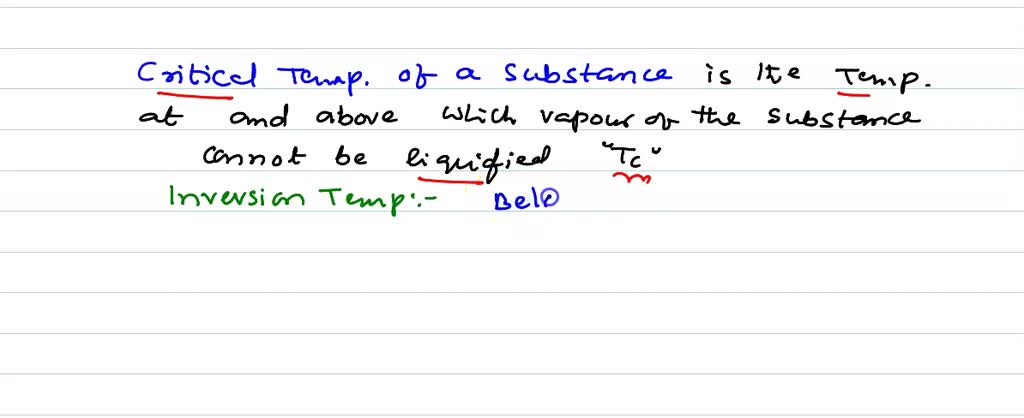 Critical Temp. of a substance is the Temp.
at and above which vapour of the substance
cannot be liquified "Tc"
Inversion Temp:- Belo